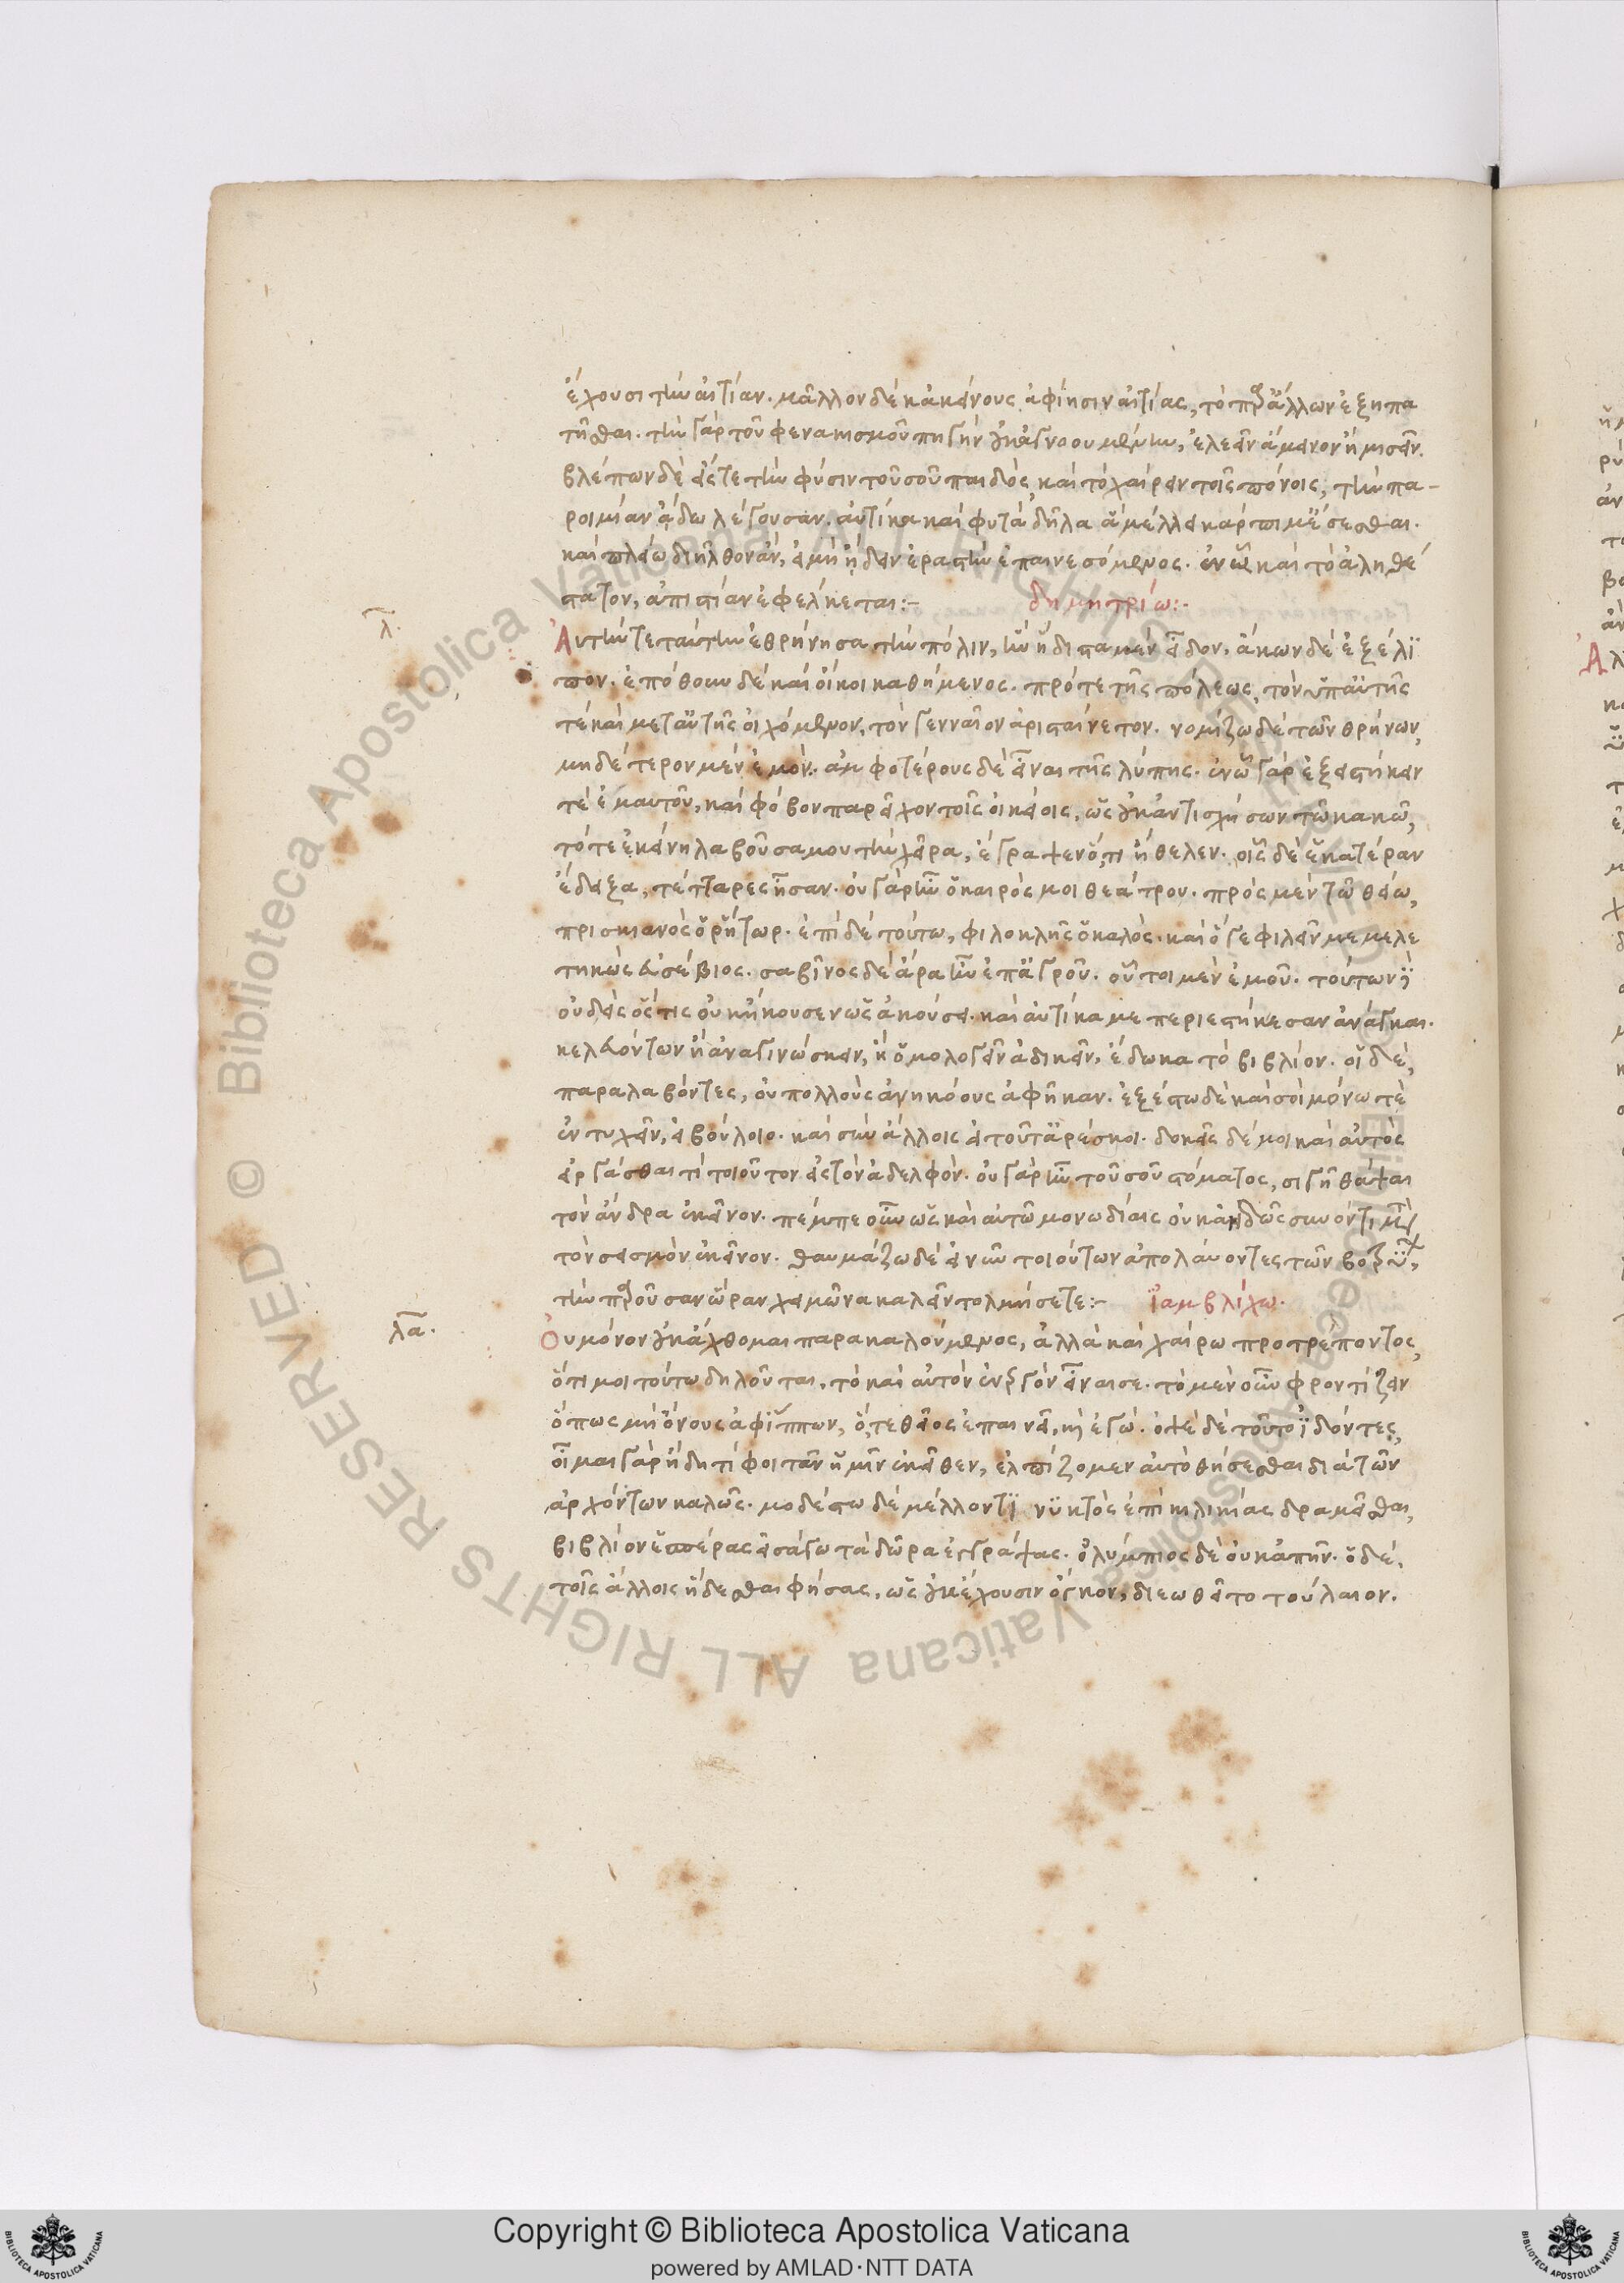 ἔχουσι τὴν αἰτίαν. μᾶλλον δὲ κἀκείνους ἀφίησιν αἰτίας, τὸ παρ' ἄλλων ἐξηπα
τῆσθαι. τὴν γὰρ τοῦ φενακισμοῦ πηγὴν οὐκ ἀγνοουμένην, ἐλεεῖν ἄμεινον ἢ μισεῖν.
βλέπων δὲ εἴς τε τὴν φύσιν τοῦ σοῦ παιδός, καὶ τὸ χαίρειν τοῖς πόνοις, τὴν πα-
ροιμίαν ᾄδω λέγουσαν. αὐτίκα καὶ φυτὰ δῆλα ἃ μέλλει κάρπιμ' ἔσεσθαι.
καὶ πλείω διῆλθον ἄν, εἰ μὴ ᾔδειν ἐραστὴν ἐπαινεσόμενος. ἐν ᾧ καὶ τὸ ἀληθέ
στατον, ἀπιστίαν ἐφέλκεται:-
δημητρίω:-
λ.
Αὐτήν τε ταύτην ἐθρήνησα τὴν πόλιν, ἣν ἥδιστα μὲν εἶδον, ἄκων δὲ ἐξέλι
πον. ἐπόθουν δὲ καὶ οἴκοι καθήμενος. πρό τε τῆς πόλεως, τὸν ὑπ' αὐτῆς
τε καὶ μετ' αὐτῆς οἰχόμενον, τὸν γενναῖον ἀρισταίνετον. νομίζω δὲ τῶν θρήνων,
μηδέτερον μὲν ἐμόν. ἀμφοτέρους δὲ εἶναι τῆς λύπης. ἐν ᾧ γὰρ ἐξεστήκειν
τε ἐμαυτοῦ, καὶ φόβον παρεῖχον τοῖς οἰκείοις, ὡς οὐκ ἀντισχήσων τῷ κακῷ,
τότε ἐκείνη λαβοῦσά μου τὴν χεῖρα, ἔγραψεν ὅ,τι ἤθελεν. οἷς δὲ ἑκατέραν
ἔδειξα, τέτταρες ἦσαν. οὐ γὰρ ἦν ὁ καιρός μοι θεάτρου. πρὸς μὲν τῷ θείω,
πρισκιανὸς ὁ ῥήτωρ. ἐπὶ δὲ τούτω, φιλοκλῆς ὁ καλός. καὶ ὅ γε φιλεῖν με μελε
τηκὼς εὐσέβιος. σαβῖνος δὲ ἄρα ἦν ἐπ' ἀγροῦ. οὗτοι μὲν ἐμοῦ. τούτων δὲ
οὐδεὶς ὅστις οὐκ ἤκουσεν ὡς ἀκούσει. καὶ αὐτίκα με περιεστήκεσαν ἀνάγκαι.
κελευόντων ἢ ἀναγινώσκειν, ἢ ὁμολογεῖν ἀδικεῖν, ἔδωκα τὸ βιβλίον. οἱ δὲ,
παραλαβόντες, οὐ πολλοὺς ἀνηκόους ἀφῆκαν. ἐξέστω δὲ καὶ σοὶ μόνω τὲ
ἐντυχεῖν, εἰ βούλοιο. καὶ σὺν ἄλλοις εἰ τοῦτ' ἀρέσκοι. δοκεῖς δέ μοι καὶ αὐτὸς
εἰργάσθαι τί τοιοῦτον εἰς τὸν ἀδελφόν. οὐ γὰρ ἦν τοῦ σοῦ στόματος, σιγῇ θάψαι
τὸν ἄνδρα ἐκεῖνον.
τὸν σεισμὸν ἐκεῖνον. θαυμάζω δὲ εἰ νῦν τοιούτων ἀπολαύοντες τῶν
τὴν παροῦσαν ὥραν χειμῶνα καλεῖν τολμήσετε:-
ἰαμβλίχω.
λα.
Οὐ μόνον οὐκ ἄχθομαι παρακαλούμενος, ἀλλὰ καὶ χαίρω προτρέποντος,
ὅτι μοι τούτω δηλοῦται, τὸ καὶ αὐτὸν ἐνεργὸν εἶναί σε. τὸ μὲν οὖν φροντίζειν
ὅπως μὴ ὄνους ἀφ' ἵππων, ὅ,τε θεῖος ἐπαινεῖ, κἀγώ. ὀψὲ δὲ τοῦτο ἰδόντες,
οἶμαι γὰρ ἤδη τί φοιτᾶν ἡμῖν ἐκεῖθεν, ἐλπίζομεν αὐτὸ θήσεσθαι διὰ τῶν
ἀρχόντων καλῶς. μοδέστω δὲ μέλλοντι νυκτὸς ἐπὶ κιλικίας δραμεῖσθαι,
βιβλίον ἑσπέρας εἰσάγω τὰ δῶρα ἐγγράψας. ὀλύμπιος δὲ οὐκ ἀπῆν. ὁ δὲ,
τοῖς ἄλλοις ἥδεσθαι φήσας, ὡς οὐκ ἔχουσιν ὄγκον, διεωθεῖτο τοὔλαιον.
Copyright © Biblioteca Apostolica Vaticana
powered by AMLAD·NTT DATA